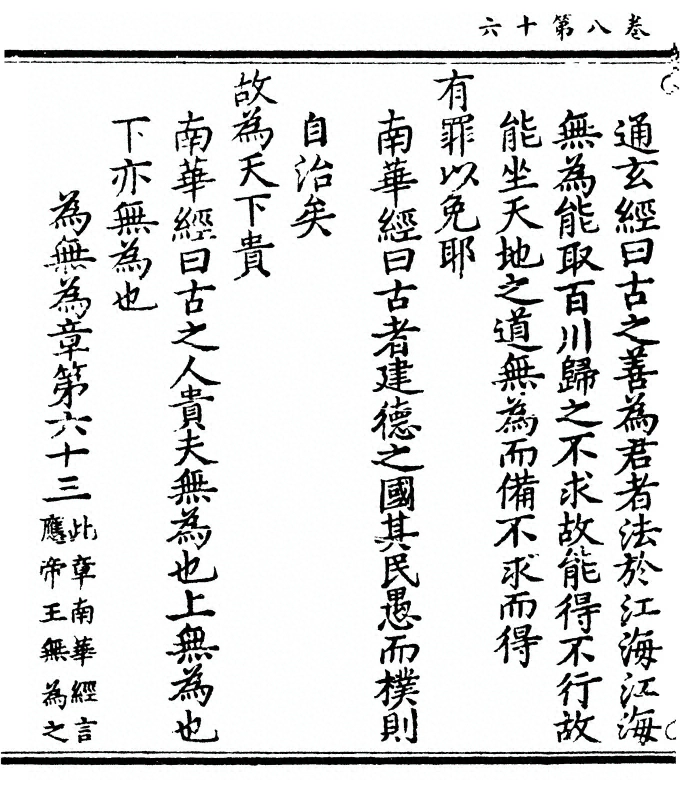 卷八第十六
通玄經曰古之善為君者法於江海江海
無為能取百川歸之不求故能得不行故
能坐天地之道無為而備不求而得
有罪以免耶
南華經曰古者建德之國其民愚而樸則
自治矣
故為天下貴
南華經曰古之人貴夫無為也上無為也
下亦無為也
為無為章第六十三
此章南華經言
應帝王無為之